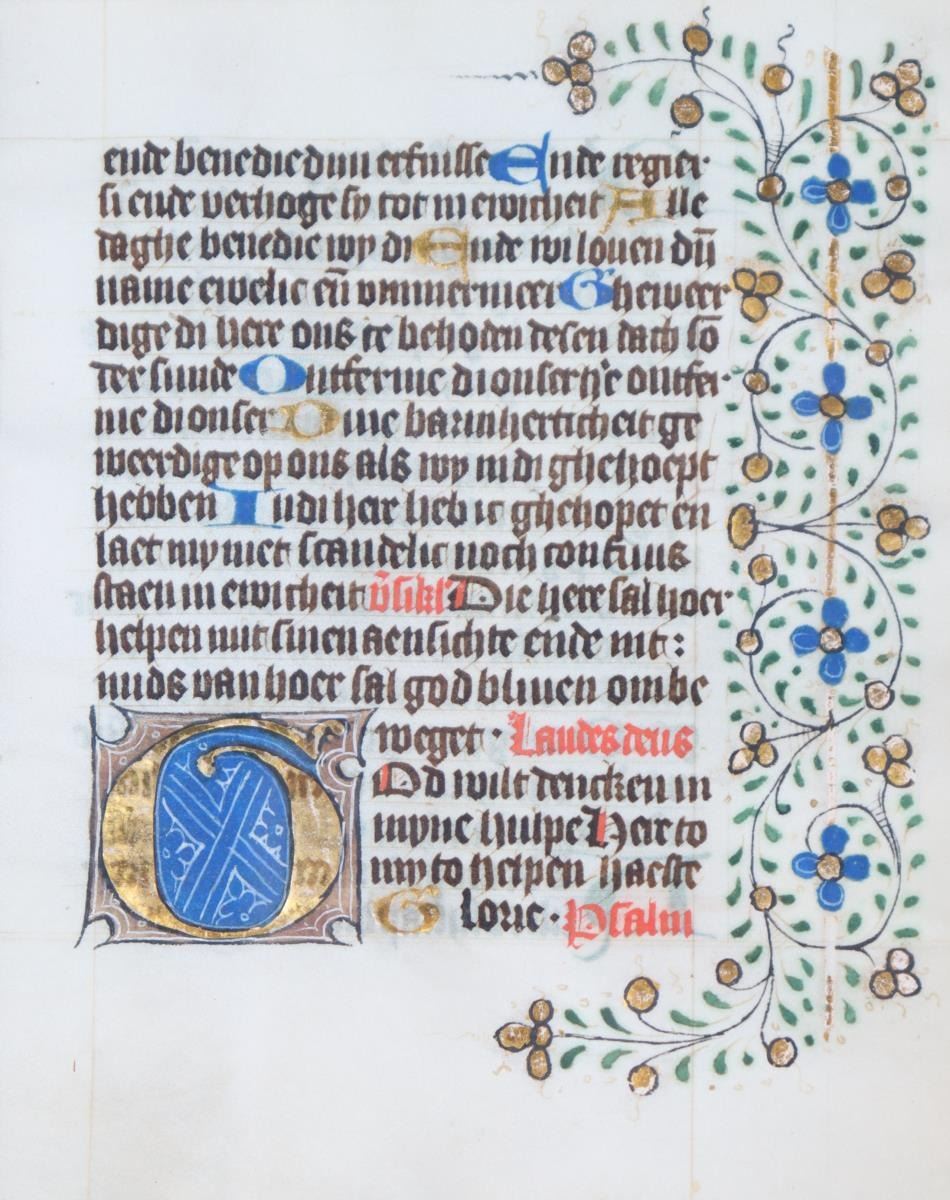 ende benedie dijn erfnisse Ende regier
si ende verhoge sy tot in ewicheit Alle
daghe benedie wy di Ende wi louen dijn̄
name ewelic en̄ vmmermeer Gheweer
dige di here ons te behoden desen dach son
der sunde Ontferme di onser he᷒re ontfer
me di onser Dine barmherticheit ge
weerdige op ons als wy in di ghehoept
hebben In di heer heb ic ghehopet en
laet my niet scandelic noch confuus
staen in ewicheit v̄sikl' Die here sal hoer
helpen mit sinen aensichte ende mit:
mids van hoer sal god bliuen onbe
weget · Laudes deus
God wilt dencken in
mijne hulpe Here to
my to helpen haeste
Glorie · Psalm